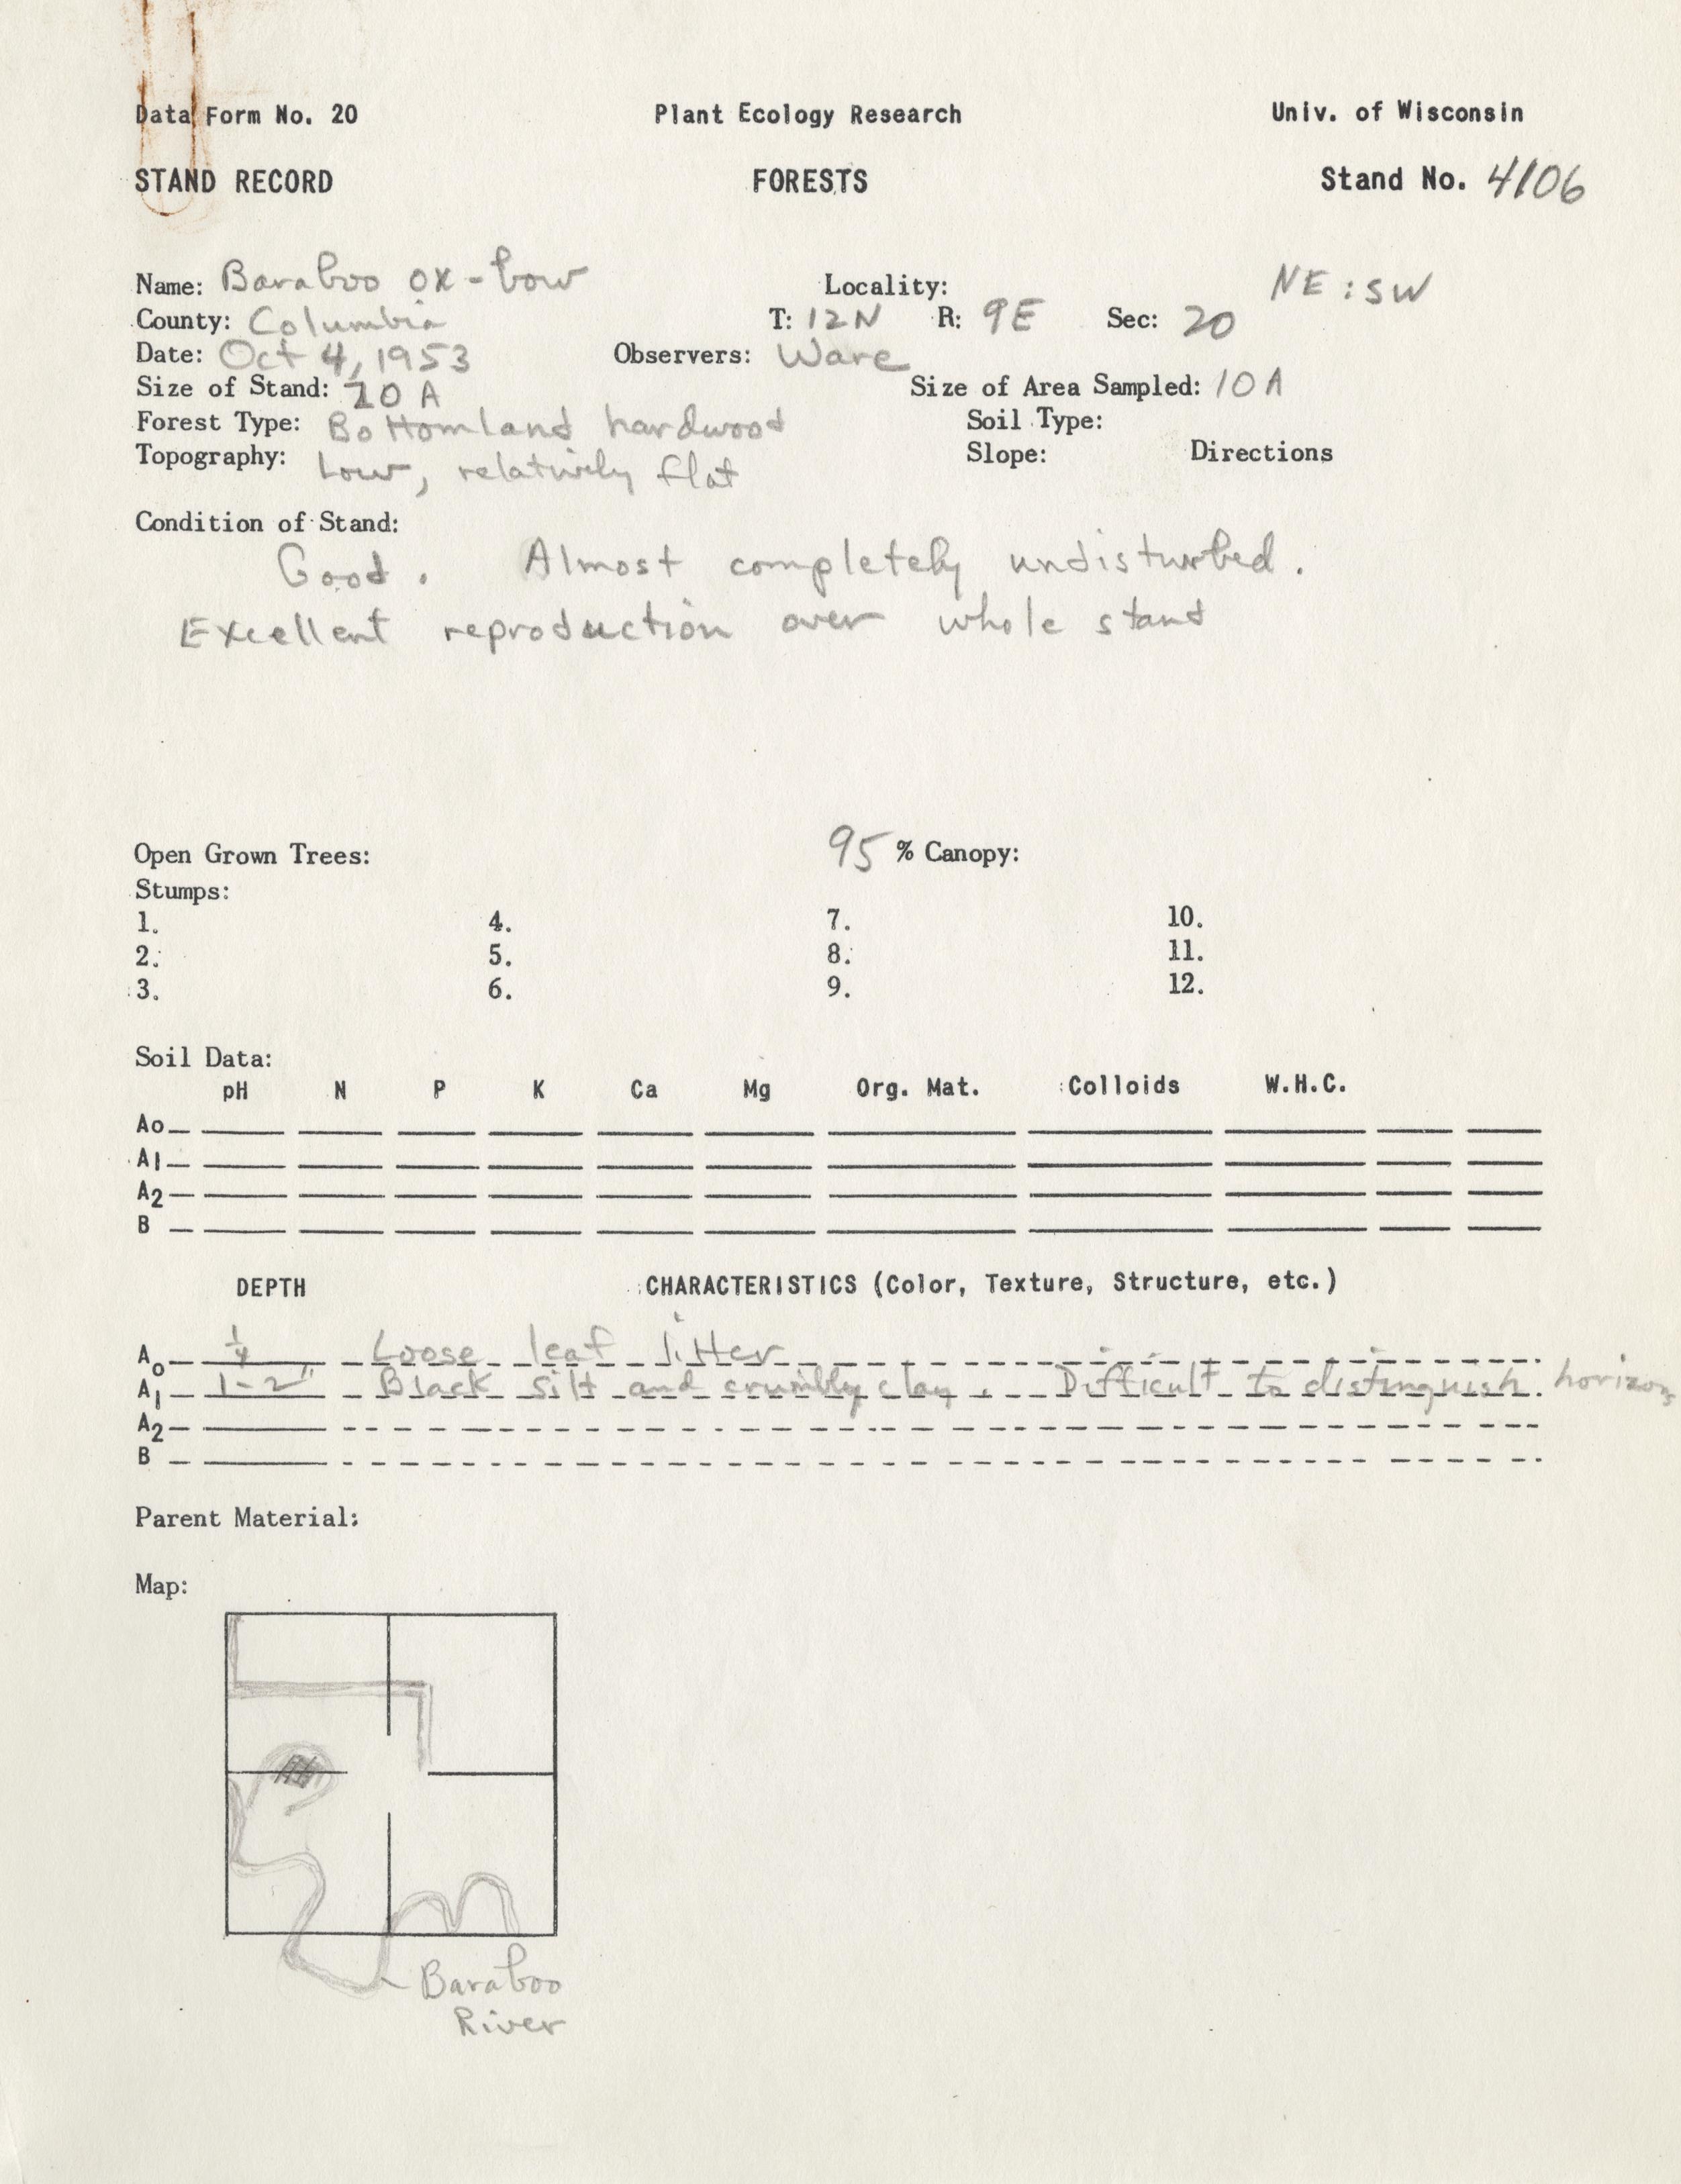 Data Form No. 20 Plant Ecology Research Univ. of Wisconsin
STAND RECORD FORESTS Stand No. 4106
Name: Baraboo ox-bow Locality: NE:SW
County: Columbia T: 12N R: 9E Sec: 20
Date: Oct 4, 1953 Observers: Ware
Size of Stand: A Size of Area Sampled: 10 A
Forest Type: Bottomland hardwood Soil Type:
Topography: Low, relatively flat Slope: Directions
Condition of Stand:
Good. Almost completely undisturbed.
Excellent reproduction over whole stand
Open Grown Trees: 95 % Canopy:
Stumps:
1. 4. 7. 10.
2. 5. 8. 11.
3. 6. 9. 12.
Soil Data:
pH N P K Ca Mg Org. Mat. Colloids W.H.C.
Ao
A1
A2
B
DEPTH CHARACTERISTICS (Color, Texture, Structure, etc.)
Ao 1/4 Loose leaf litter
A1 1-2" Black silt and crumbly clay. Difficult to distinguish horizons
A2
B
Parent Material:
Map:
Baraboo
River